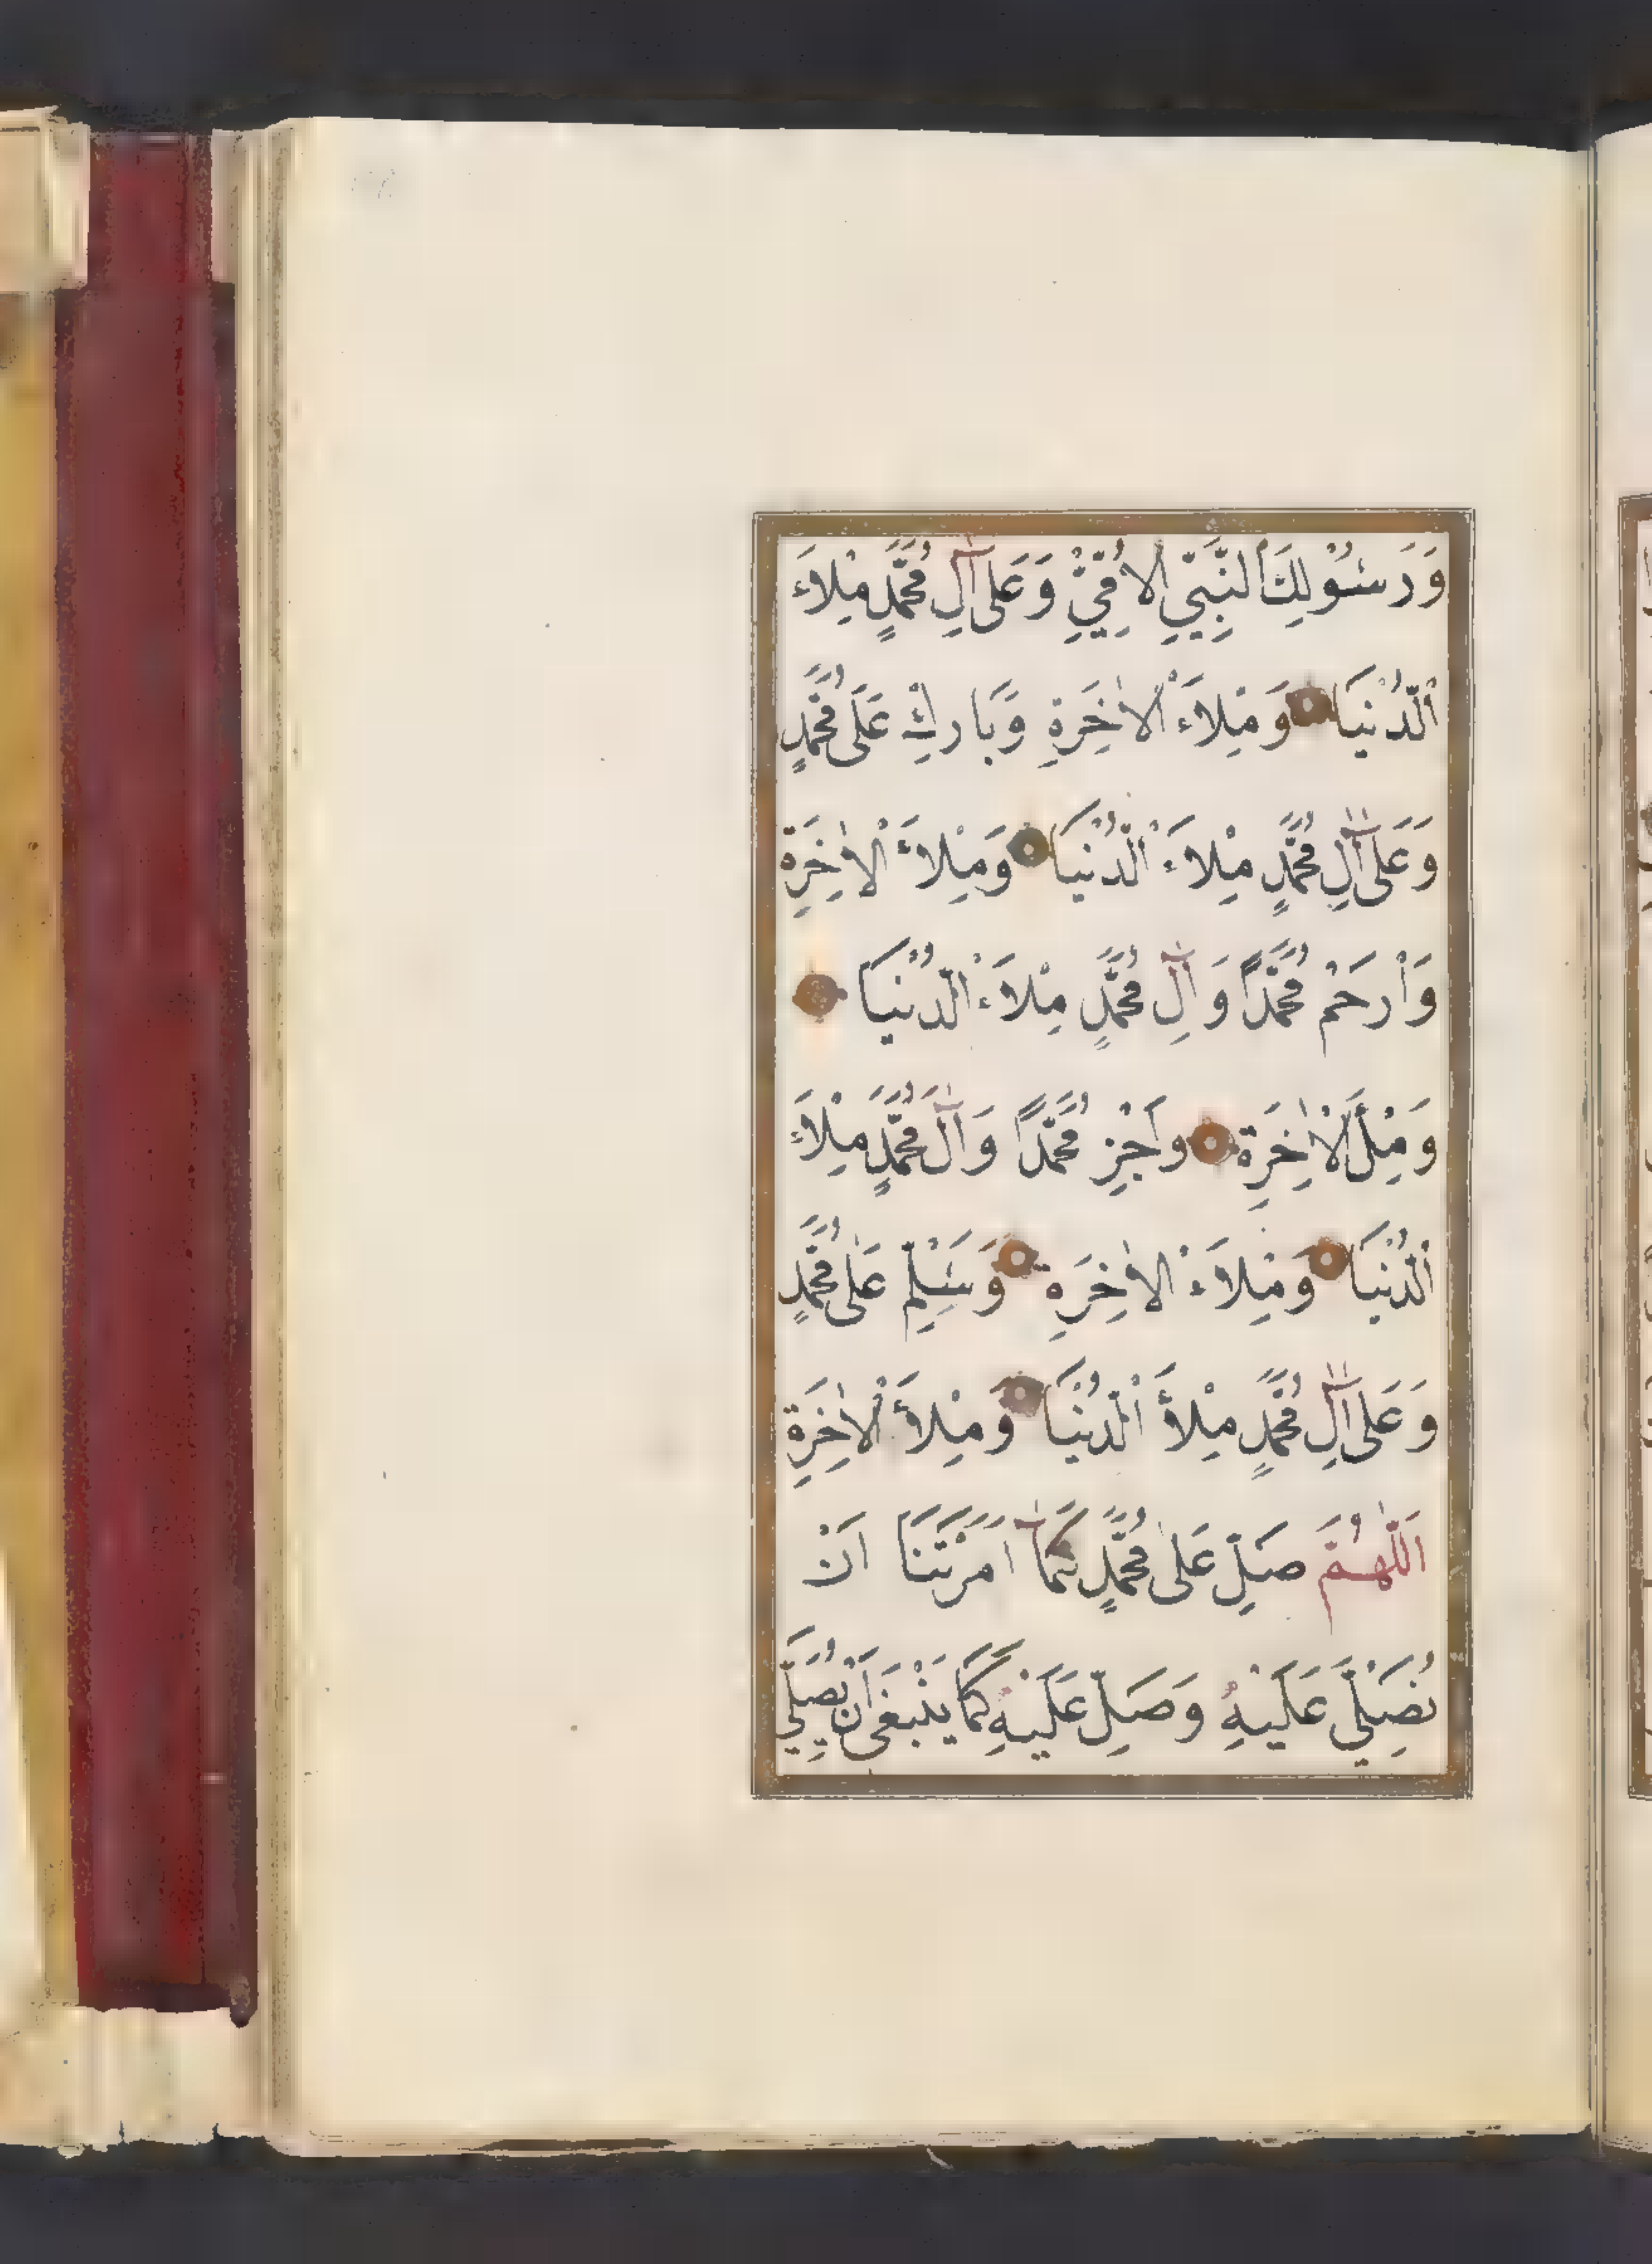 وَرَسُوْلِكَ النَّبِيِّ الْاُمِّيِّ وَعَلٰى اٰلِ مُحَمَّدٍ مِلَاَءَ
الدُّنْيَا وَمِلَاَءَ الْاٰخِرَةِ وَبَارِكْ عَلٰى مُحَمَّدٍ
وَعَلٰى اٰلِ مُحَمَّدٍ مِلَاءَ الدُّنْيَا وَمِلَاءَ الْاٰخِرَةِ
وَارْحَمْ مُحَمَّدًا وَاٰلِ مُحَمَّدٍ مِلَاَءَ الدُّنْيَا
وَمِلَْ الْاٰخِرَةِ وَاَجْزِ مُحَمَّدًا وَاٰلَ مُحَمَّدٍ مِلَاَءَ
الدُّنْيَا وَمِلَاَءَ الْاٰخِرَةِ وَسَلِّمْ عَلٰى مُحَمَّدٍ
وَعَلٰى اٰلِ مُحَمَّدٍ مِلْأَ الدُّنْيَا وَمِلْأَ الْاٰخِرَةِ
اَللّٰهُمَّ صَلِّ عَلٰى مُحَمَّدٍ كَمَا اَمَرْتَنَا اَنْ
نُصَلِّيَ عَلَيْهِ وَصَلِّ عَلَيْهِ كَمَا يَنْبَغِى اَنْ يُصَلّٰى